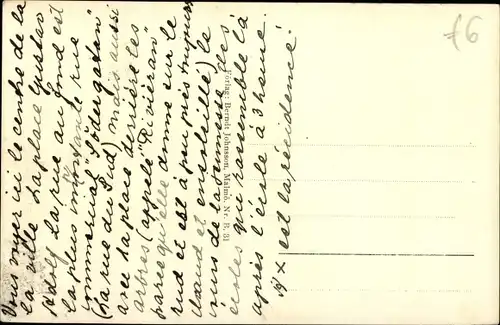 Vous voyez ici le centre de la
la ville. La place Gustav
Adolf. La rue au fond est
la plus importante rue
commercial "Södergatan"
(La rue du Sud) mais aussi
avec la place derrière les
arbres (appelé "Rivieran"
parce qu'elle donne sur le
sud et est à peu près toujours
chaud et ensoleillé) le
de la jeunesse des
écoles qui rassemble là
après l'école à 3 heure.
X est la récidence.
Förlag: Berndt Johnsson, Malmö. Nr. R. 31
£6